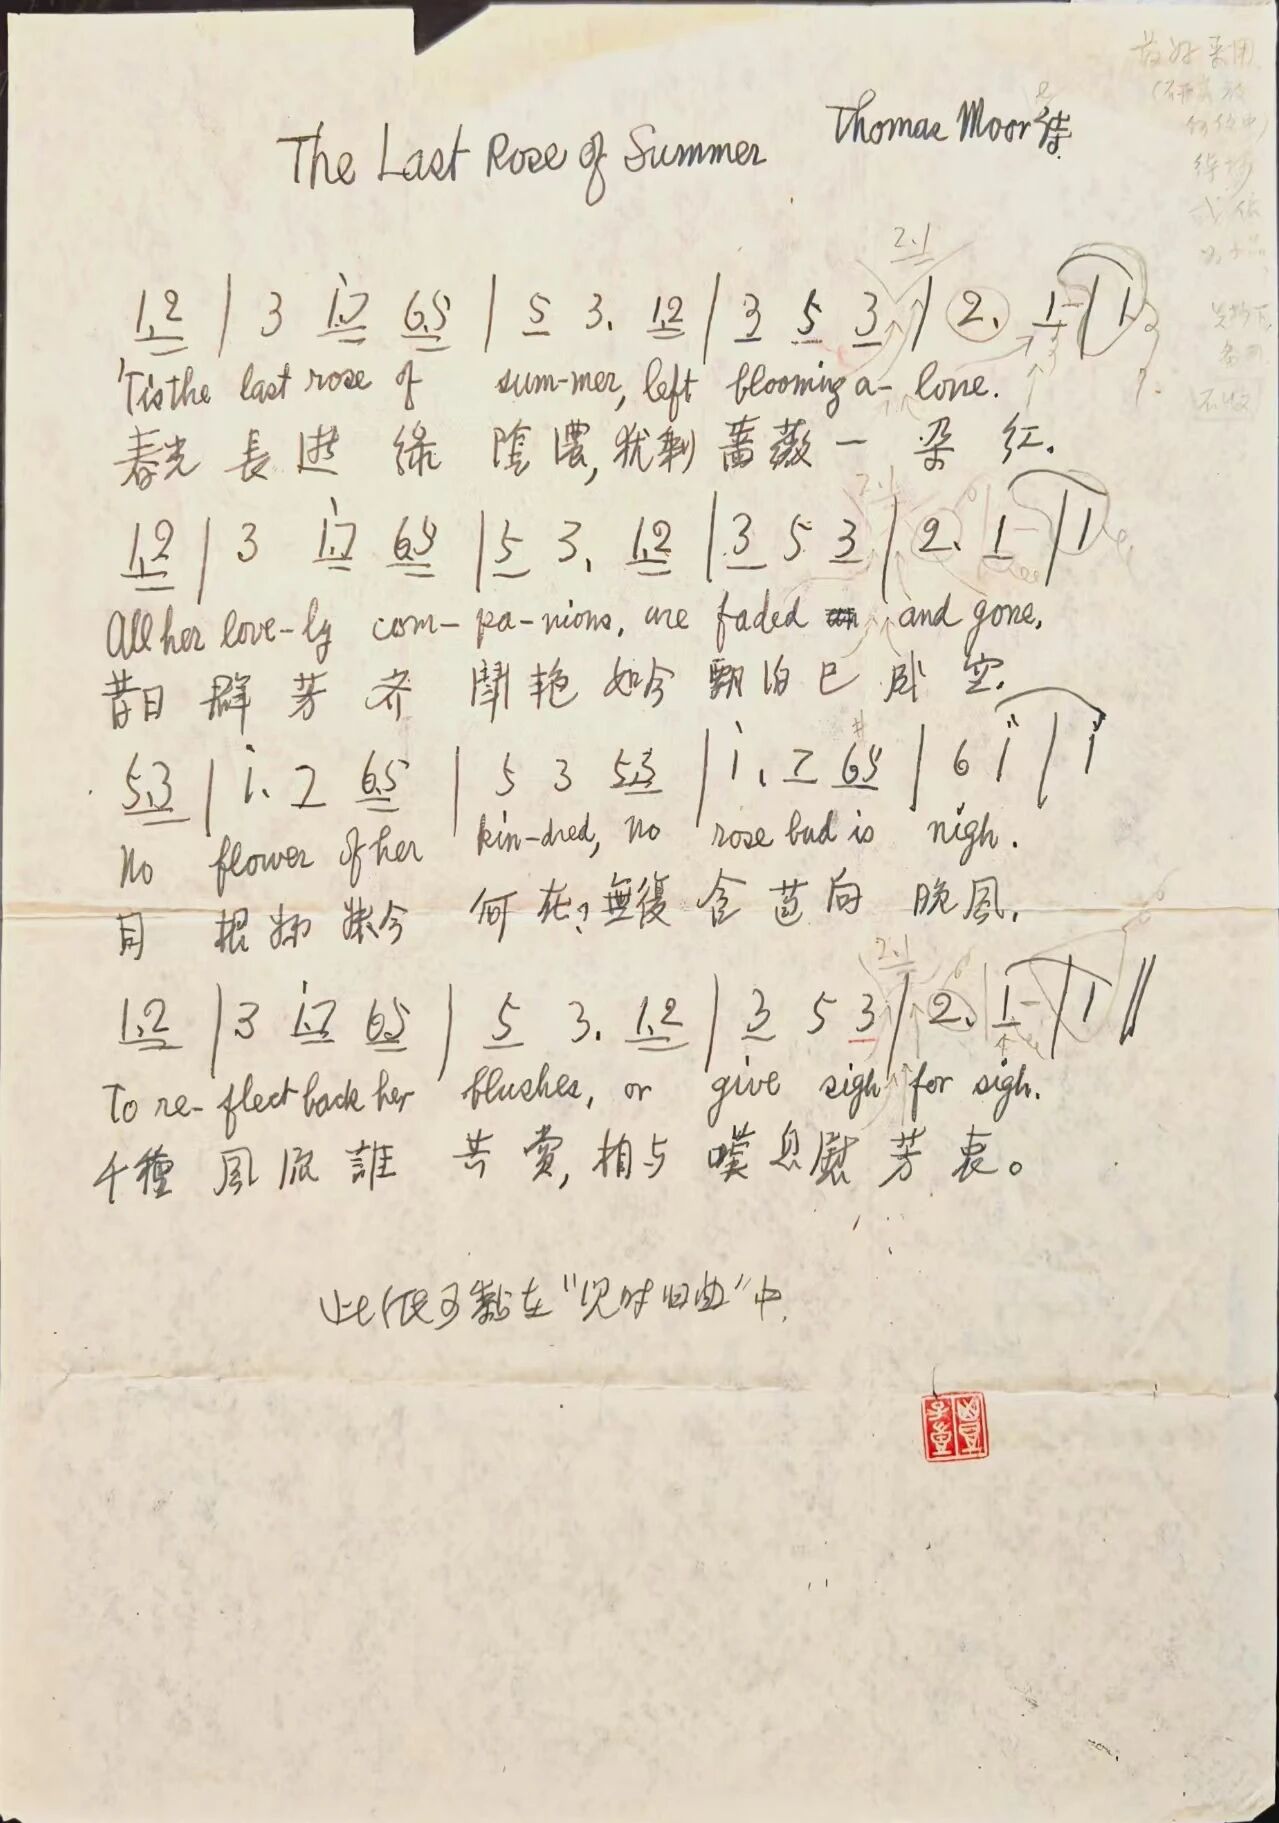 The Last Rose of Summer
Thomas Moore 诗
2.1
1.2 | 3 i.7 6.5 | 5 3. 1.2 | 3 5 3 | 2. 1- | 1
'Tis the last rose of sum-mer, left blooming a-lone.
春光長逝綠陰濃,犹剩薔薇一朵紅.
2.1
1.2 | 3 i.7 6.5 | 5 3. 1.2 | 3 5 3 | 2. 1- | 1
All her love-ly com-pa-nions, are faded and gone.
昔日群芳齐鬪艳如今飄泊已卧空.
5.3 | i. 7 6.5 | 5 3 5.3 | i. 7 6.5 | 6 i | i
No flower of her kin-dred, no rose bud is nigh.
同根姊妹今何在?無復含苞向晚風.
2.1
1.2 | 3 i.7 6.5 | 5 3. 1.2 | 3 5 3 | 2. 1- | 1 ||
To re-flect back her blushes, or give sigh for sigh.
千種風流誰共赏,相与嘆息慰芳衷。
此纸可黏在"儿时旧曲"中.